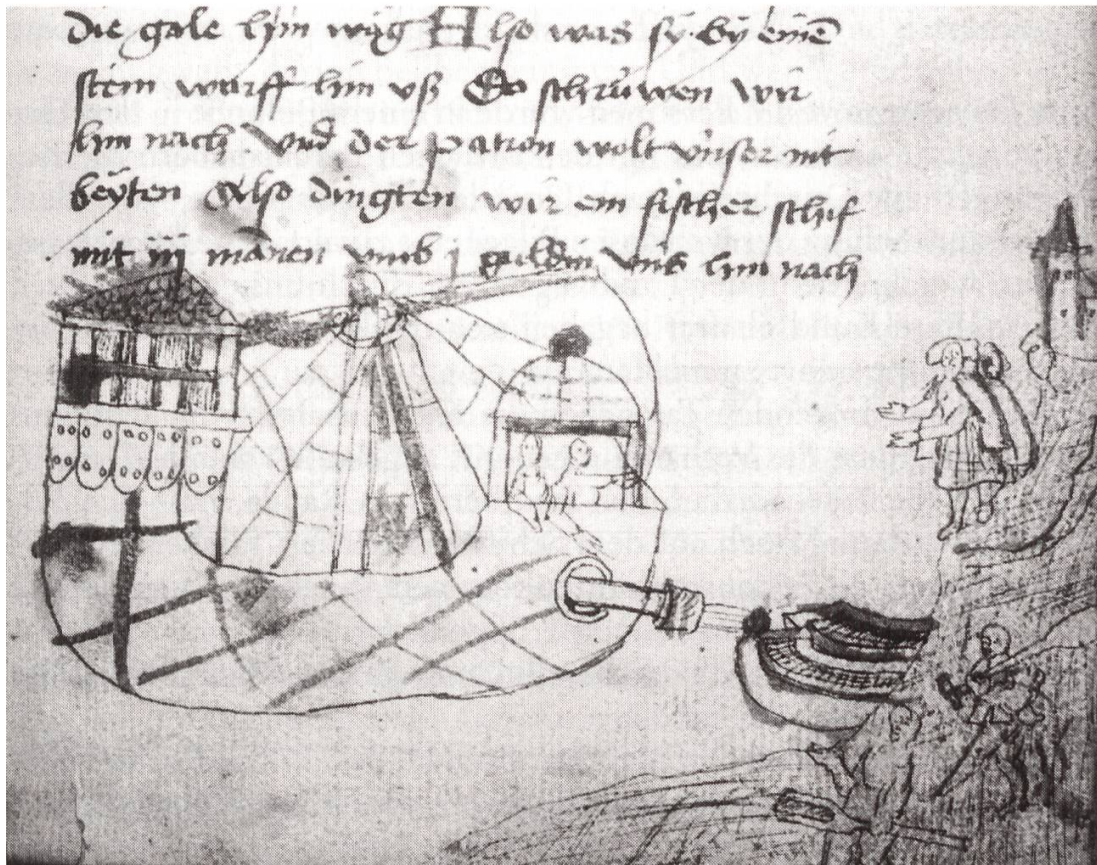 die gale hin wåg Also was sy by eine͂
stein wurff hin vß Do schrůwen wir
hin nach vnd der patron wolt vnser nit
beyten Also dingten wir ein fischer schif
mit iij manen vmb j guldin vnd hin nach